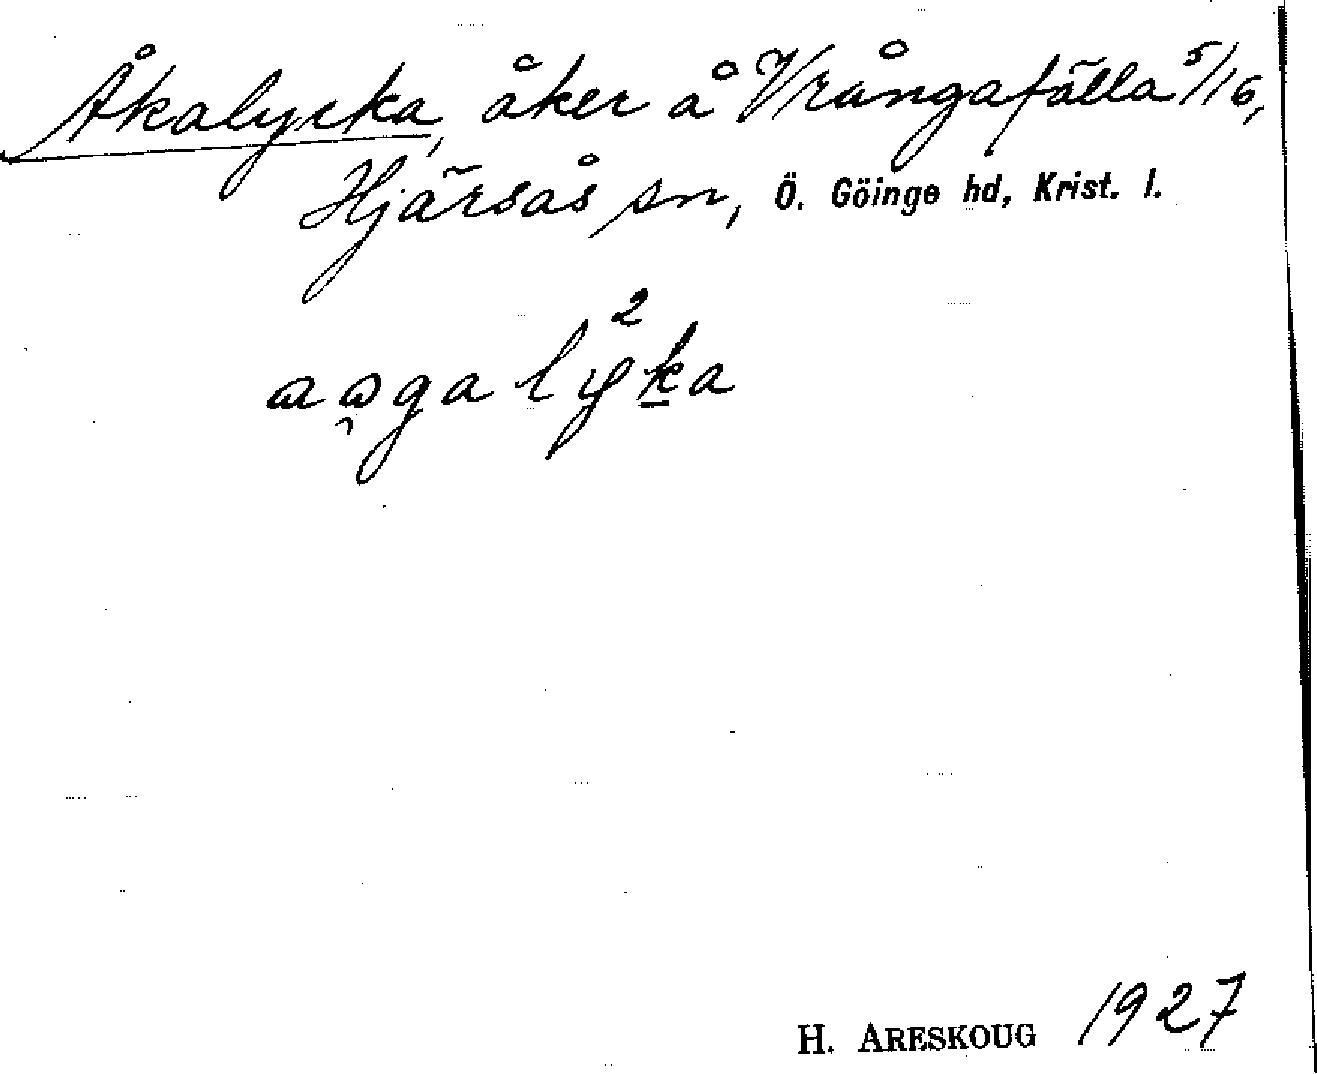 Åkalycka, åker å Vrångafälla 5/16,
Hjärsås sn, Ö. Göinge hd, Krist. l.
2
H. ARESKOUG 1927